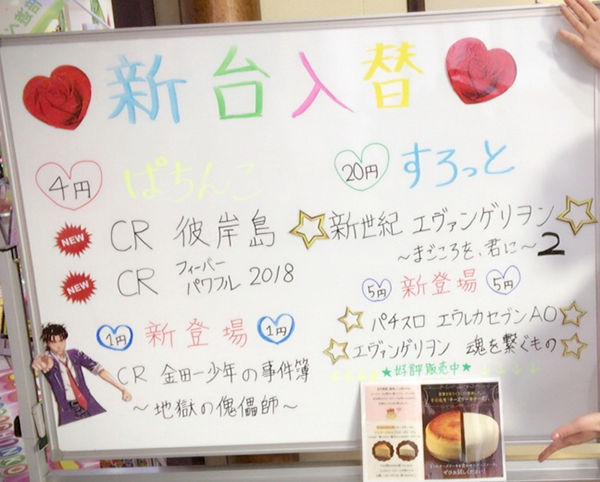 新台入替
4円 ぱちんこ
NEW CR 彼岸島
NEW CR フィーバーパワフル 2018
1円 新登場 1円
CR 金田一少年の事件簿
～地獄の傀儡師～
20円 すろっと
新世紀 エヴァンゲリヲン
～まごころを、君に～2
5円 新登場 5円
パチスロ エウレカセブンAO
エヴァンゲリヲン 魂を繋ぐもの
★好評販売中★